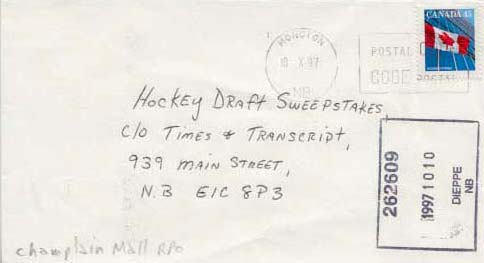 CANADA 45
MONCTON
10 X 97
NB
POSTAL
CODE POSTAL
Hockey Draft Sweepstakes
c/o Times & Transcript,
939 Main Street,
N.B E1C 8P3
262609
19971010
DIEPPE
NB
Champlain Mall RPO